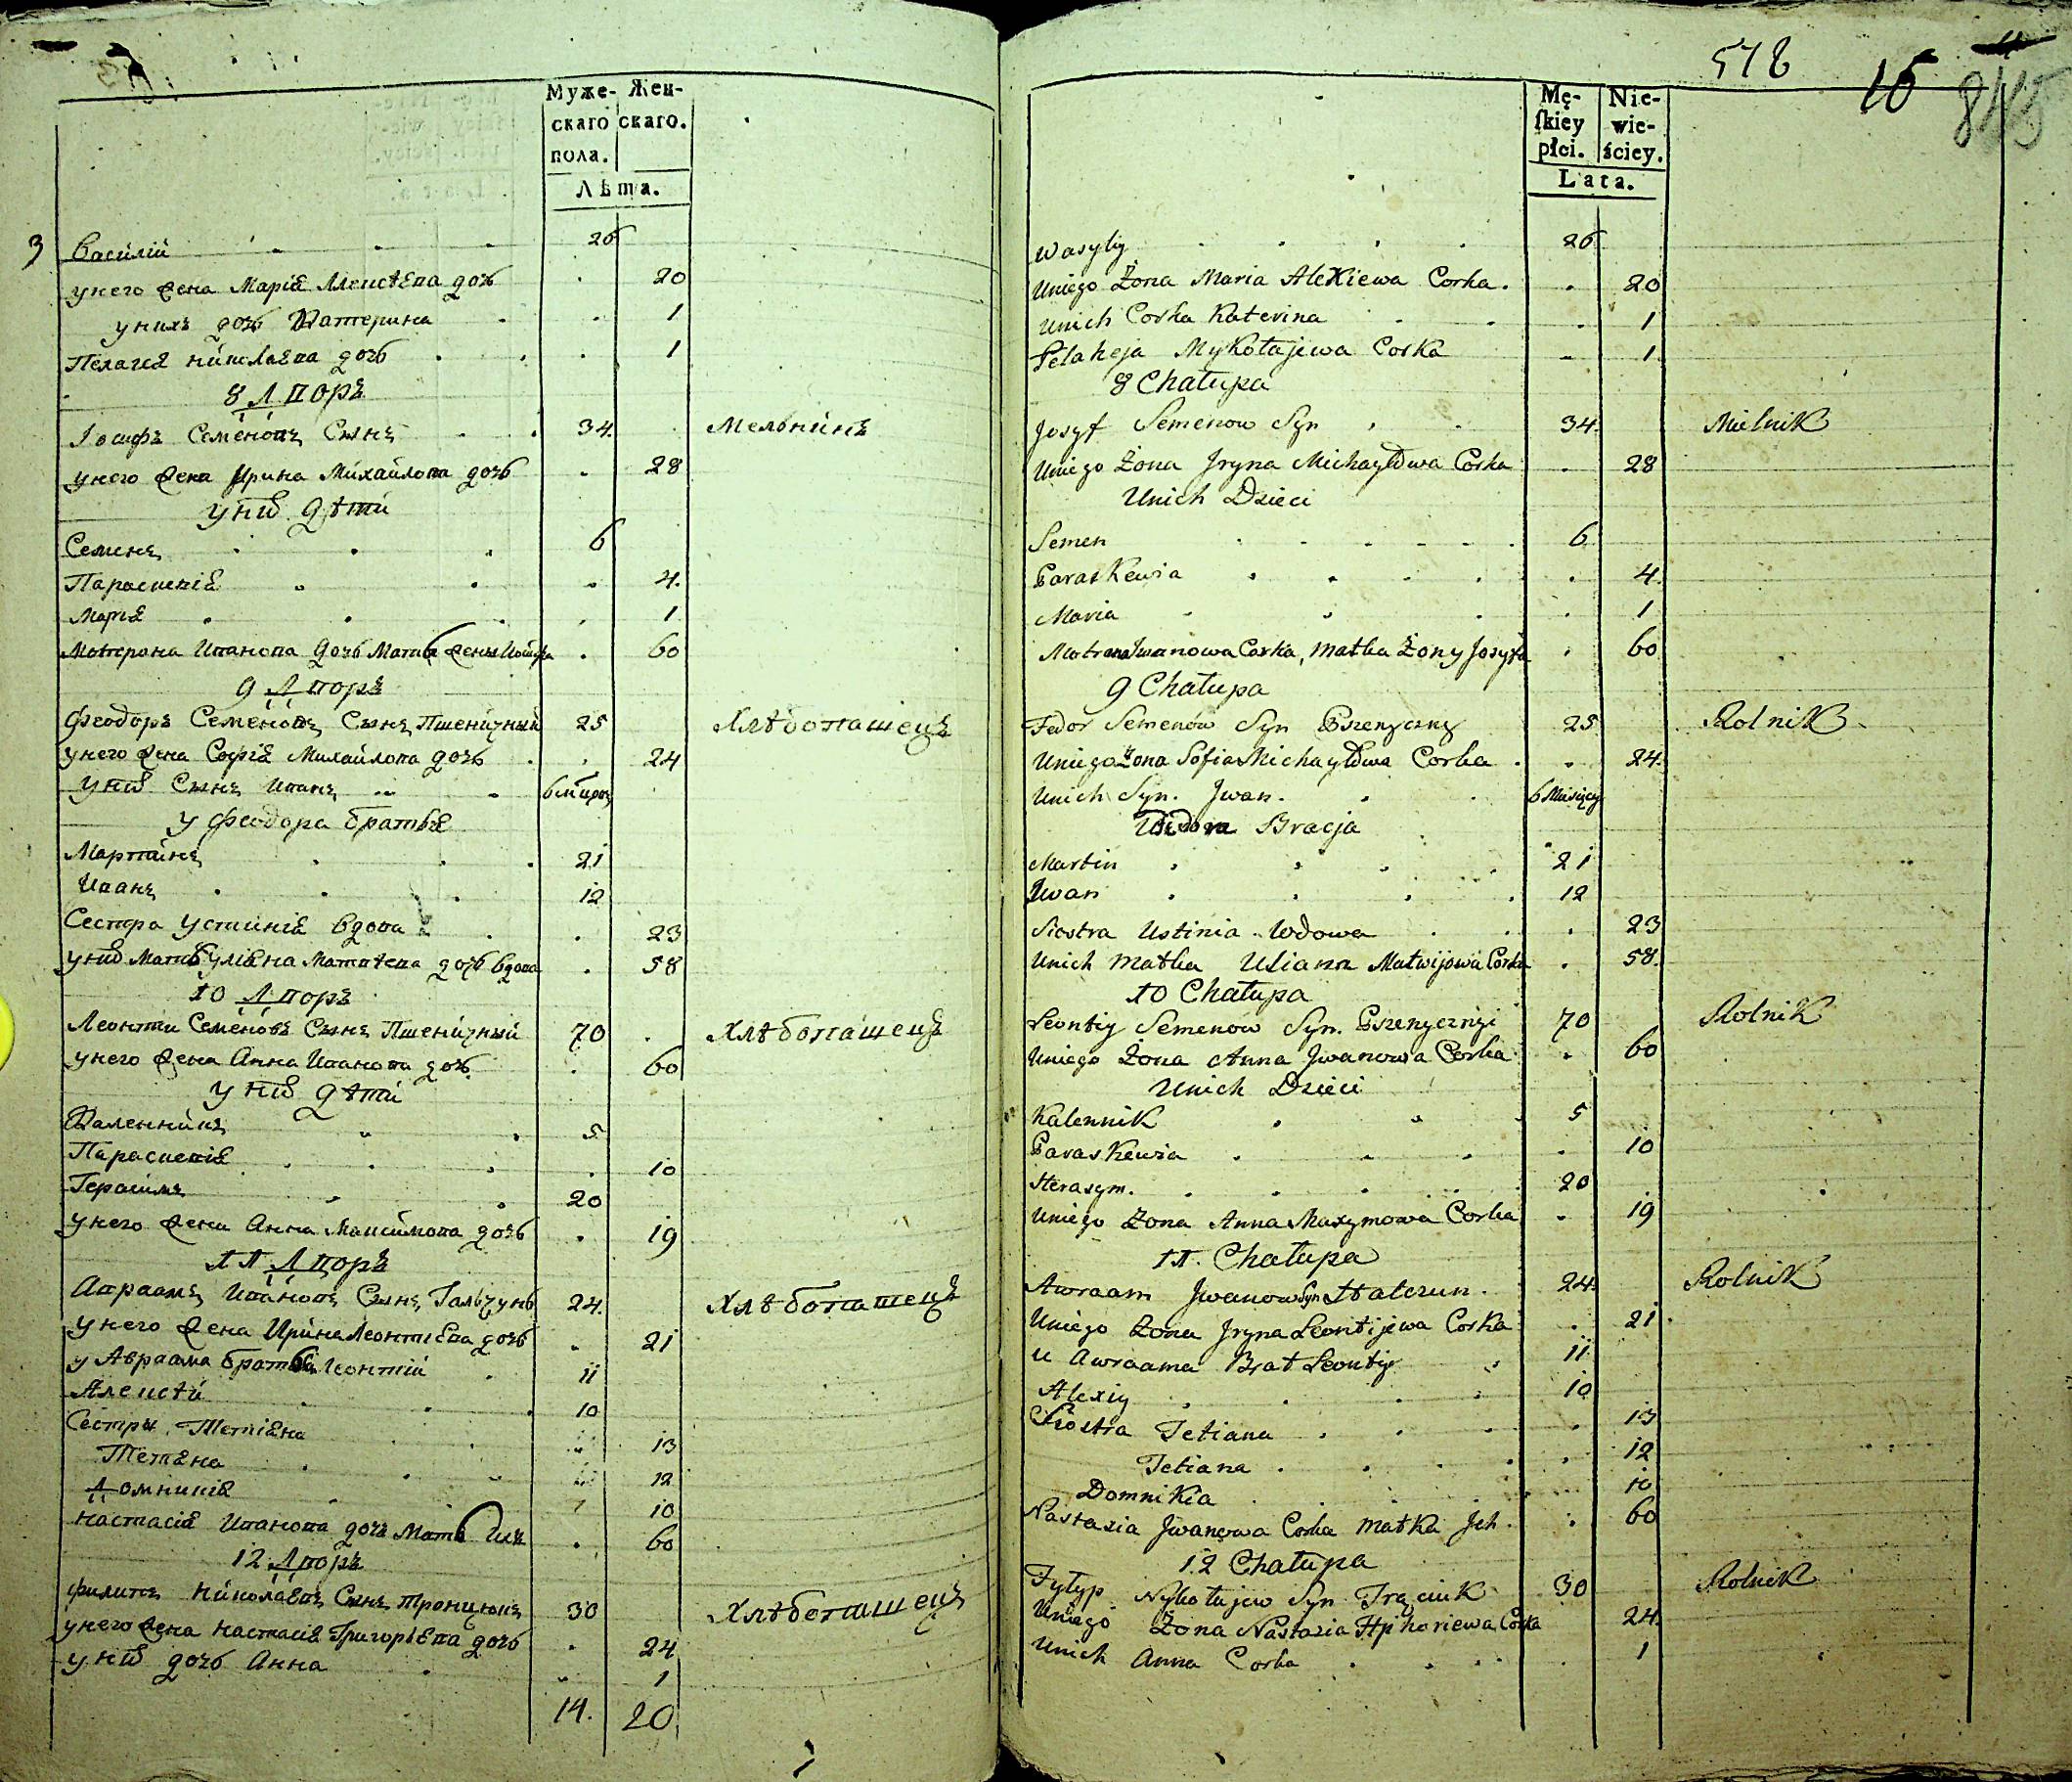 Муже-
скаго
пола.
Жен-
скаго.
Лѣта.
3 Василій 26
у него жена Маріѣ Алексѣева дочь 20
у нихъ дочь Катерина 1
Пелагіѣ Николаева дочь 1
8 Дворъ
Іосифъ Семеновъ Сынъ 34. Мельникъ
у него жена Ирина Михайлова дочь 28
у них дѣти
Семенъ 6
Параскевіѣ 4.
Маріѣ 1
Матрона Иванова дочь Мать жены Иосифа 60
9 Дворъ
Феодоръ Семеновъ Сынъ Пшеничный 25 Хлѣбопашецъ
у него жена Софіѣ Михайлова дочь 24
у них Сынъ Иванъ 6 мцовъ
у Феодора братьѣ
Мартинъ 21
Иванъ 12
Сестра Устиніѣ вдова 23
у них Мать Улѣна Матвѣева дочь вдова 58
10 Дворъ
Леонтіи Семеновъ Сынъ Пшеничный 70 Хлѣбопашецъ
у него жена Анна Иванова дочь 60
у них дѣти
Каленникъ 5
Параскевіѣ 10
Герасимъ 20
у него жена Анна Максимова дочь 19
11 Дворъ
Авраамъ Ивановъ Сынъ Гальчунъ 24. Хлѣбопашецъ
у него жена Ирина Леонтіева дочь 21
у Авраама братья Леонтій 11
Алексѣй 10
Сестры Тетіѣна 13
Тетѣна 12
Домникіѣ 10
Настасіѣ Иванова дочь Мать ихъ 60
12 Дворъ
Филипъ Николаевъ Сынъ Тронцюкъ 30 Хлѣбопашецъ
у него жена Настасіѣ Григорьева дочь 24
у них дочь Анна 1
14. 20
578
16
845
Mę-
ſkiey
płci.
Nie-
wie-
ściey.
Lata.
Wasyly 26
Uniego Żona Maria Alexiewa Corka. 20
Unich Corka Katerina 1
Pelaheja Mykołajewa Corka 1
8 Chałupa
Josyf Semenow Syn 34. Mielnik
Uniego Żona Jryna Michayłowa Corka 28
Unich Dzieci
Semen 6
Paraskewia 4.
Maria 1
Matrona Jwanowa Corka, matka Żony Josyfa 60
9 Chałupa
Fedor Semenow Syn Pszenyczny 25 Rolnik
Uniego Żona Sofia Michayłowa Corka 24.
Unich Syn. Jwan. 6 Miesięcy
Bracja
Martin 21
Jwan 12
Siostra Ustinia Wdowa 23
Unich matka Uliana Matwijowa Corka 58.
10 Chałupa
Leontiy Semenow Syn. Pszenycznyi 70 Rolnik
Uniego Żona Anna Jwanowa Corka 60
Unich Dzieci
Kalennik 5
Paraskewia 10
Herasym. 20
Uniego Żona Anna Maxymowa Corka 19
11. Chałupa
Awraam Jwanow Syn Halczun. 24. Rolnik
Uniego Żona Jryna Leontijewa Corka 21
u Awraama Brat Leontiy 11
Alexiy 10
Siostra Tetiana 13
Tetiana 12
Domnikia 10
Nastazia Jwanowa Corka matka Jch. 60
12 Chałupa
Fylyp Nykołajew Syn Trąciuk 30 Rolnik
Uniego Żona Nastazia Corka 24.
Unich Anna Corka 1